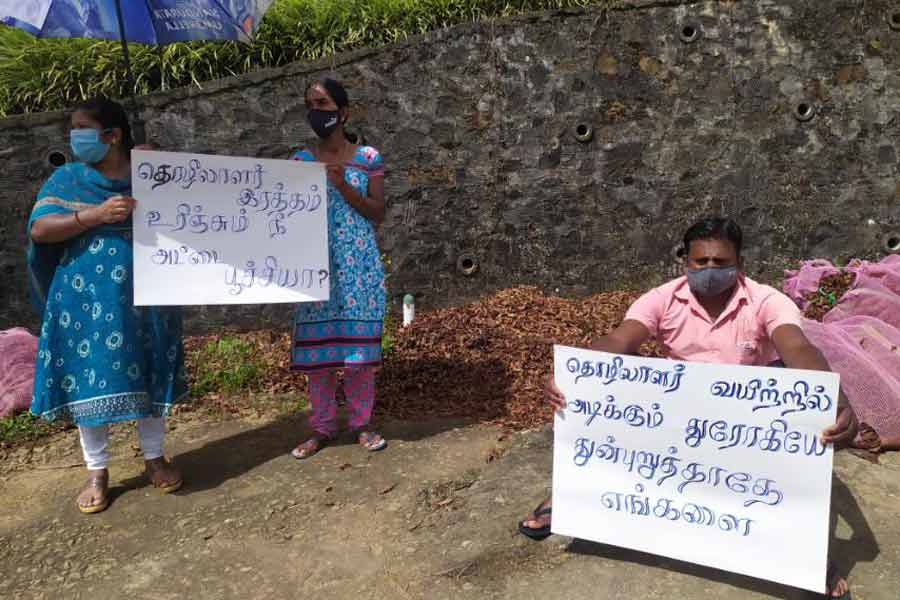 தொழிலாளர்
இரத்தம்
உரிஞ்சும் நீ
அட்டை பூச்சியா?
தொழிலாளர் வயிற்றில்
அடிக்கும் துரோகியே
துன்புறுத்தாதே
எங்களை